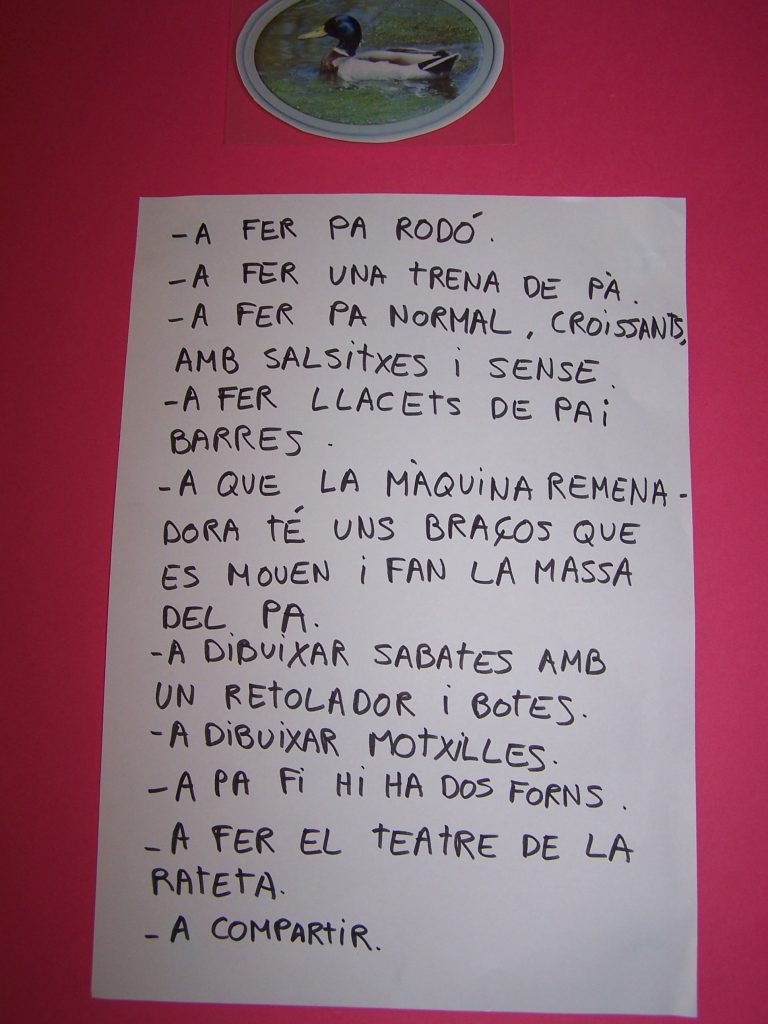 -A FER PA RODÓ.
-A FER UNA TRENA DE PÀ.
-A FER PA NORMAL, CROISSANTS,
AMB SALSITXES i SENSE.
-A FER LLACETS DE PA i
BARRES.
-A QUE LA MÀQUINA REMENA-
DORA TÉ UNS BRAÇOS QUE
ES MOUEN i FAN LA MASSA
DEL PA.
-A DIBUIXAR SABATES AMB
UN RETOLADOR i BOTES.
-A DIBUIXAR MOTXILLES.
-A PA FI HI HA DOS FORNS.
-A FER EL TEATRE DE LA
RATETA.
-A COMPARTIR.